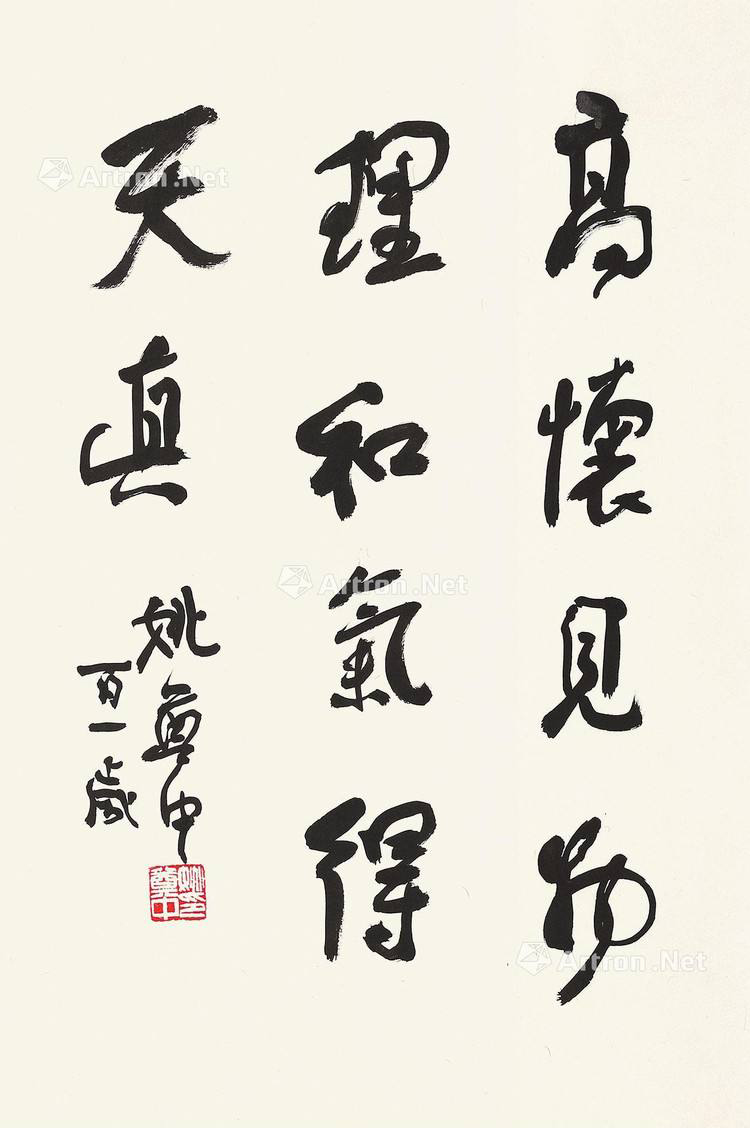 高懷見物
理和氣得
天真
姚奠中
百一歲
姚奠中印
Artron.Net
Artron.Net
Artron.Net